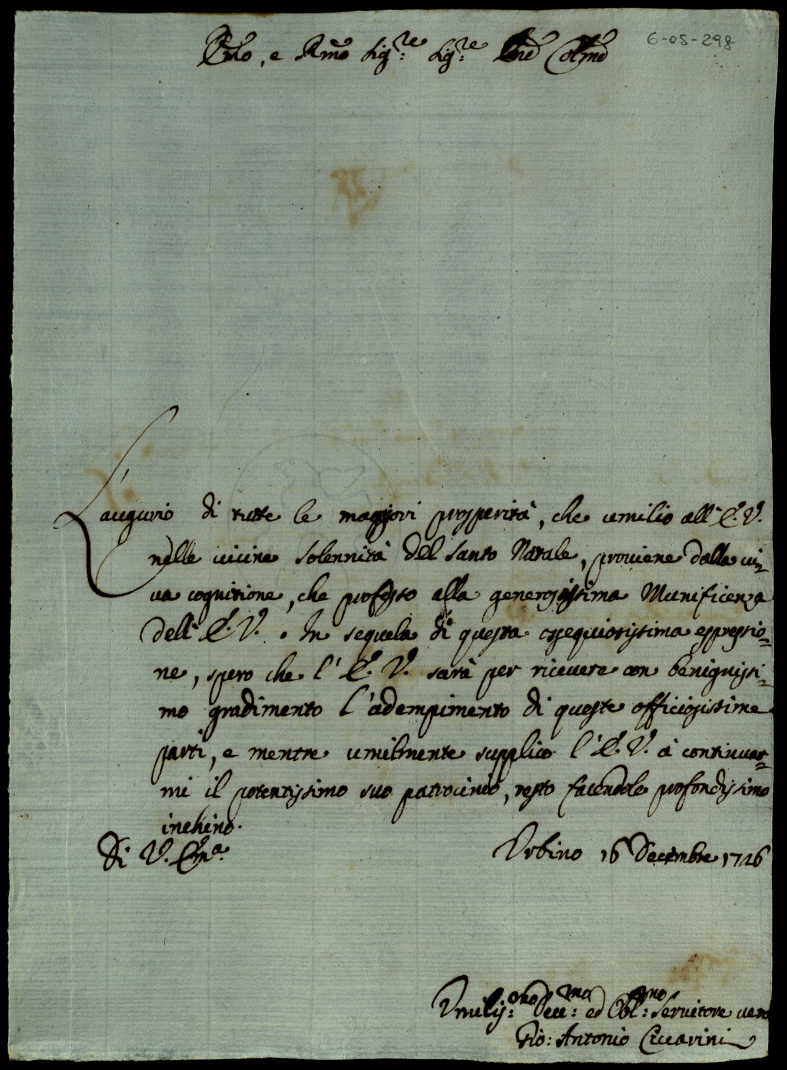 6-05-298
Emo, e Rmo Sig.re Sig.re Pne Colmo
L'augurio di tutte le maggiori prosperità, che umilio all'E. V.
nelle vicine solennità del Santo Natale, proviene dalla vi-
va cognitione, che professo alla generosissima Munificenza
dell'E. V. In sequela di questa ossequiosissima espressio-
ne, spero che l'E. V. sarà per ricevere con benignissi-
mo gradimento l'adempimento di queste officiosissime
parti, e mentre umilmente supplico l'E. V. à continuar-
mi il potentissimo suo patrocinio, resto facendole profondissimo
inchino.
Di V. Em.a
Urbino 16 Decembre 1726
Umiliss.mo Dev.mo ed Obl.mo Servitore vero
Gio: Antonio Ciccarini